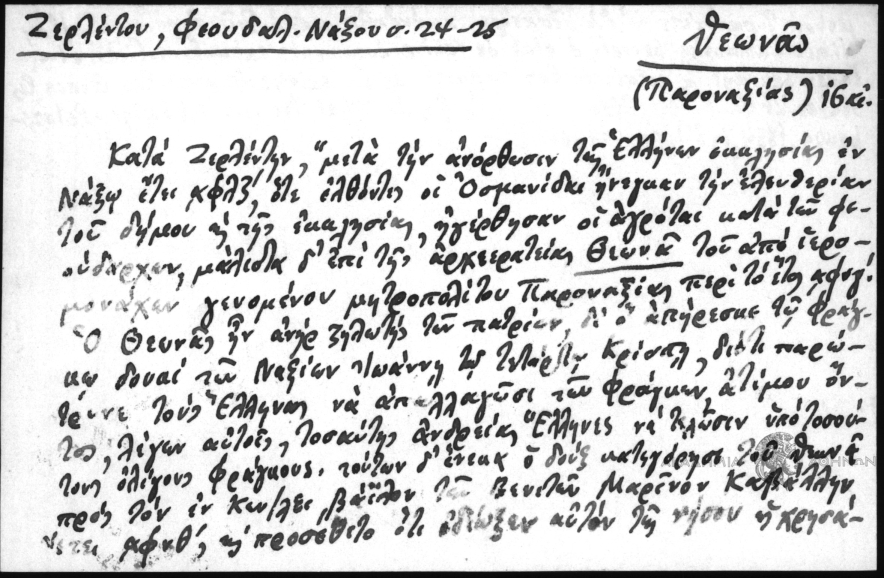 Ζερλέντου, Φεουδαλ. Νάξου σ. 24-25
Θεωνᾶς
(Παροναξίας) ις αἰ.
Κατά Ζερλέντην, "μετὰ τὴν ἀνόρθωσιν τῆς Ἑλλήνων ἐκκλησίας ἐν
Νάξῳ ἔτει αφλζ', ὅτε ἐλθόντες οἱ Ὀσμανίδαι ἤνεγκαν τὴν ἐλευθερίαν
τοῦ δήμου κ τῆς ἐκκλησίας, ἠγέρθησαν οἱ ἀγρόται κατὰ τῶν φε-
ουδάρχων, μάλιστα δ' ἐπὶ τῆς ἀρχιερατείας Θεωνᾶ τοῦ ἀπό ἱερο-
μονάχων γενομένου μητροπολίτου Παροναξίας περὶ τό ἔτος
Ὁ Θεωνᾶς ἦν ἀνήρ ζηλωτής τῶν πατρίων, δι' ὅ ἀπήρεσκε τῷ Φράγ-
κῳ δουκί τῶν Ναξίων Ἰωάννῃ τῷ τετάρτῳ Κρίσπῃ, διότι παρώ-
τρυνε τούς Ἕλληνας νὰ ἀπαλλαγῶσι τῶν Φράγκων, ἀτίμου ὄν-
τος, λέγων αὐτοῖς, τοσαύτης ἀνδρείας Ἕλληνες νά τελῶσιν ὑπό τοσού-
τους ὀλίγους Φράγκους· τούτων δ' ἕνεκα ὁ δούξ κατηγόρησε τοῦ Θεωνᾶ
πρός τόν ἐν Κων/λει βάϊλον τῶν Βενετῶν Μαρῖνον Καβάλλην
ἔτει κ προσέθετο ὅτι ἐδίωξεν αὐτόν τῆς νήσου κ χρησά-